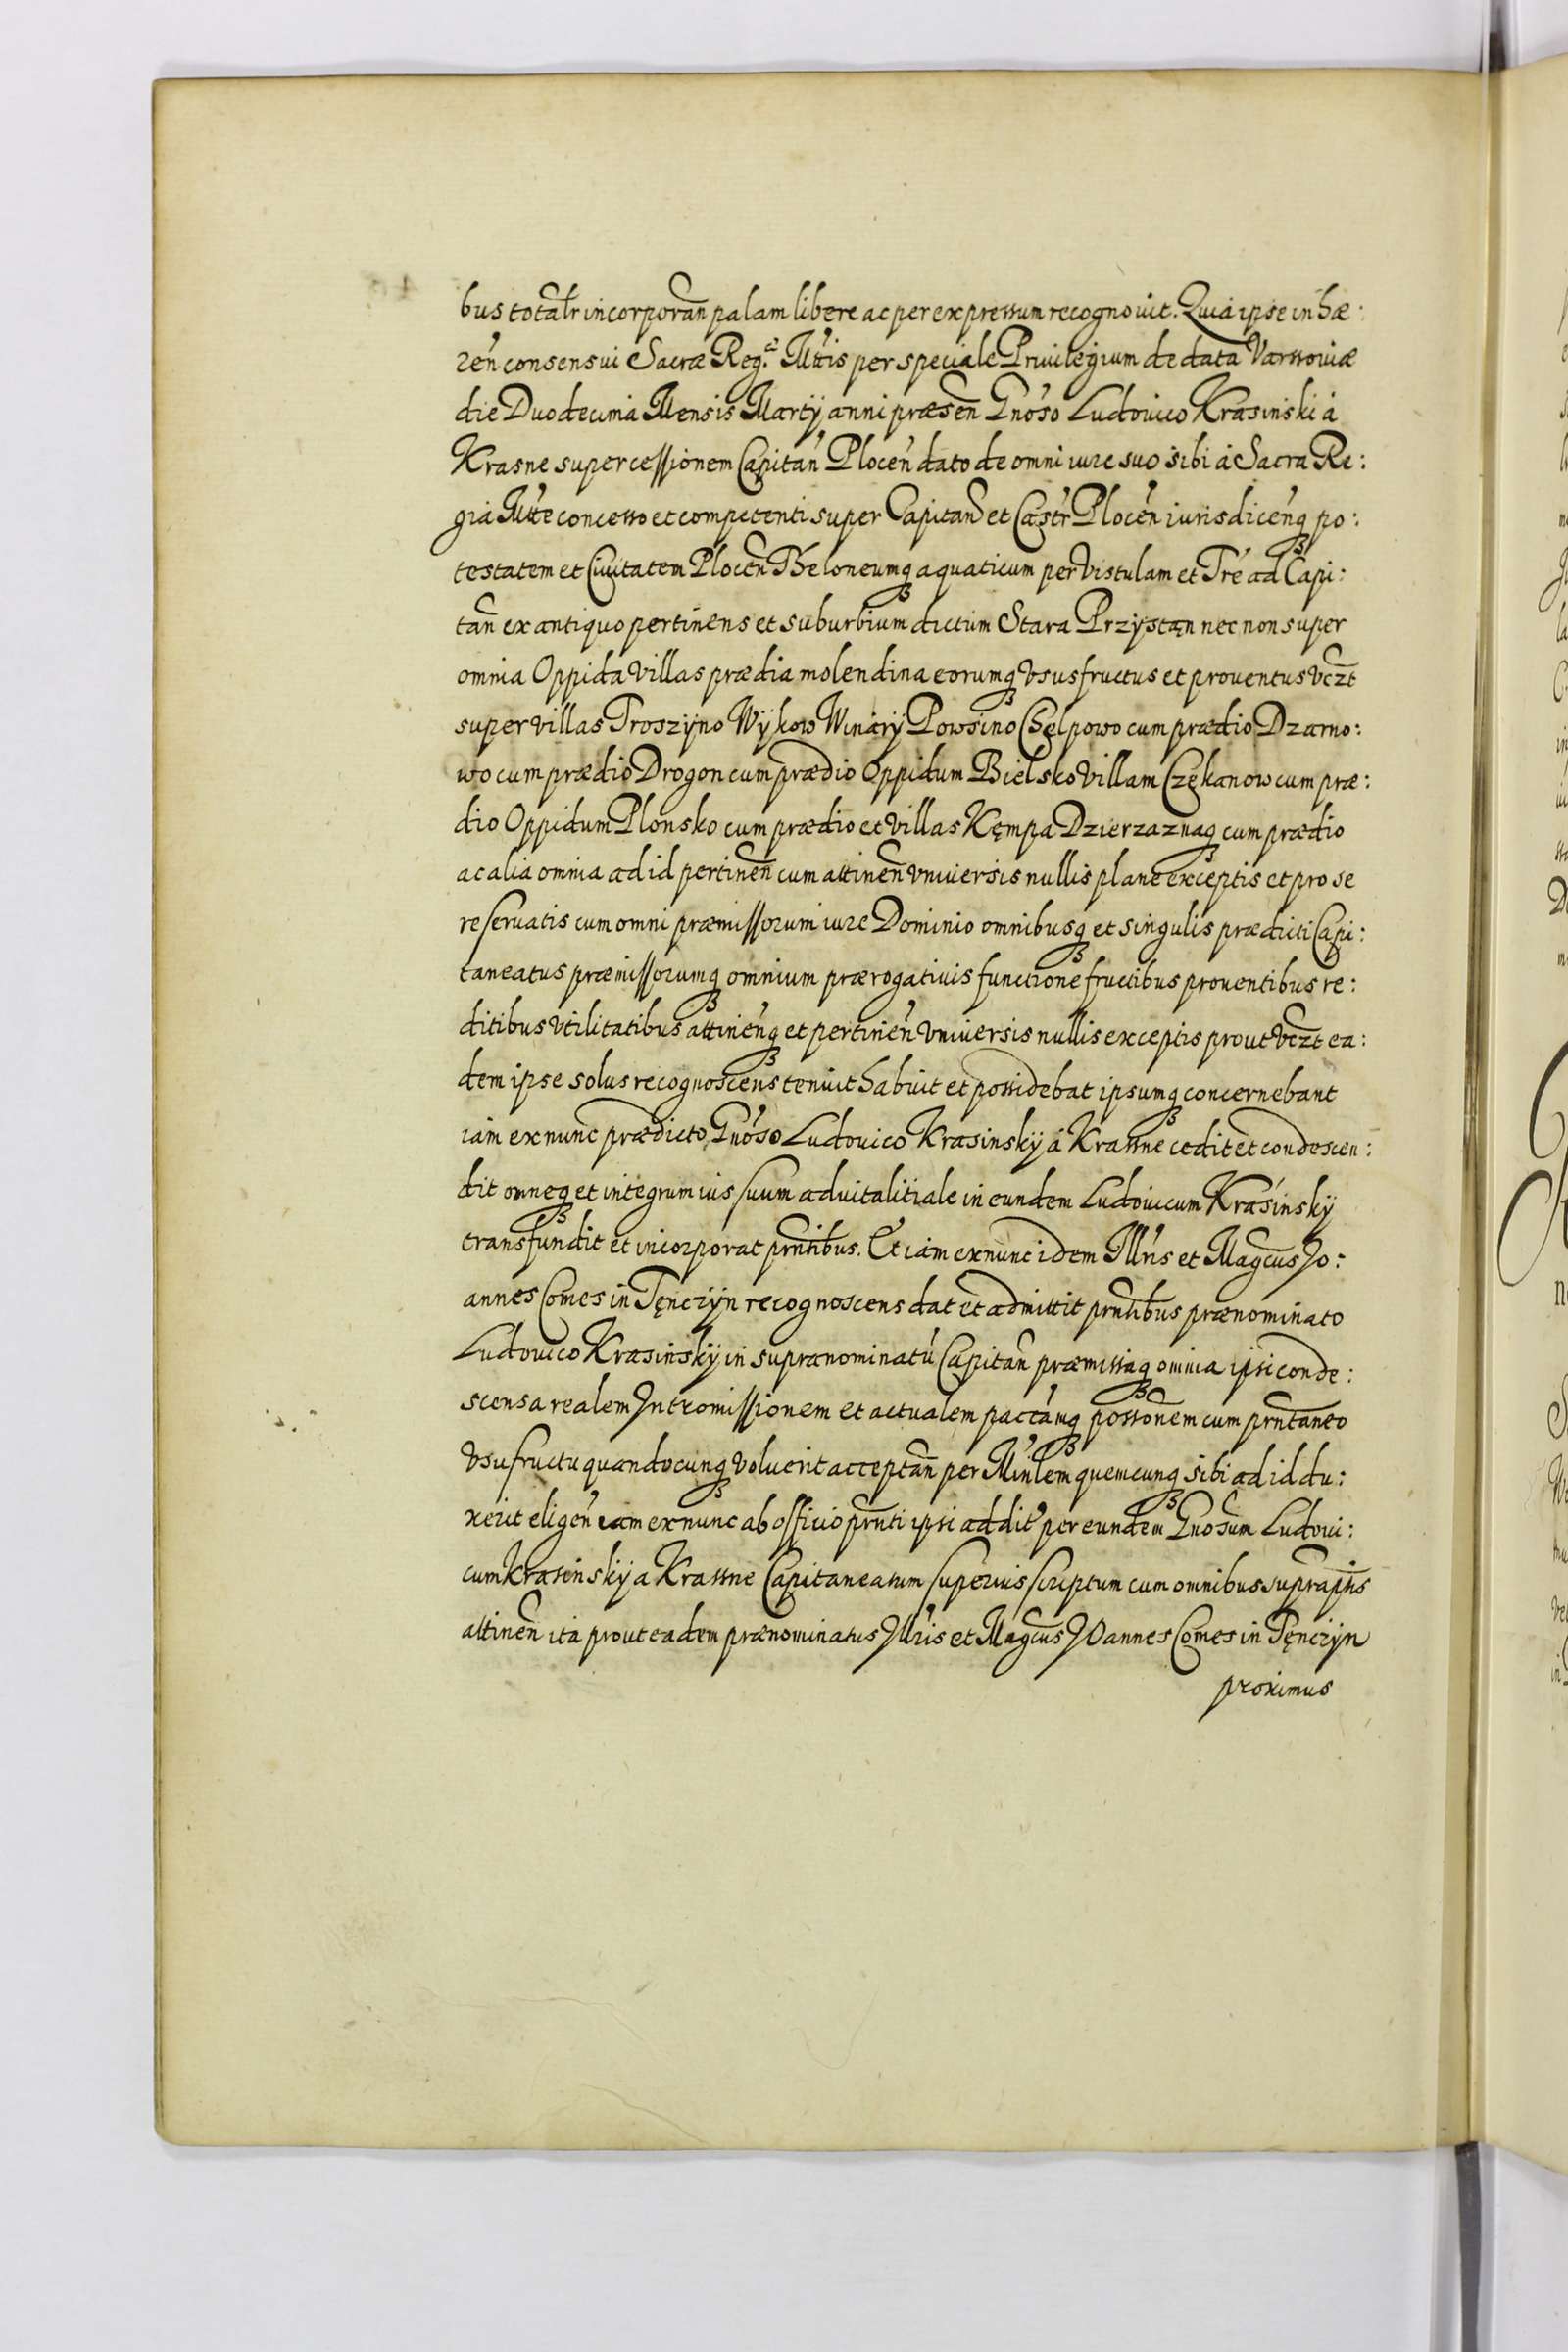 bus totalr incorporan palam libere ac per expressum recognouit. Quia ipse in hæ:
ren consensui Sacræ Reg.e Mttis per speciale Priuilegium de data Varssouiæ
die Duodecima Mensis Martij anni præsen Gnoso Ludouico Krasinski á
Krasne super cessionem Capitan Plocen dato de omni iure suo sibi á Sacra Re:
gia Mtte concesso et competenti super Capitan et Castr Plocen iurisdicenq po:
testatem et Ciuitatem Plocen Theloneumq aquaticum per Vistulam et Tre ad Capi:
tan ex antiquo pertinens et suburbium dictum Stara Przystan nec non super
omnia Oppida Villas prædia molendina eorumq Vsusfructus et prouentus Vczt
super villas Troszyno Wÿkow Winarÿ Powsino Chełpowo cum prædio Dzarno:
wo cum prædio Drogon cum prædio Oppidum Bielsko Villam Czękanow cum præ:
dio Oppidum Plonsko cum prædio et Villas Kęmpa Dzierzaznaq cum prædio
ac alia omnia ad id pertinen cum attinen vniuersis nullis plane exceptis et pro se
reseruatis cum omni præmissorum iure Dominio omnibusq et singulis prædicti Capi:
taneatus præmissorumq omnium prærogatiuis functione fructibus prouentibus re:
ditibus Vtilitatibus attinenq et pertinen Vniuersis nullis exceptis prout Vczt ea:
dem ipse solus recognoscens tenuit habuit et possidebat ipsumq concernebant
iam ex nunc prædicto Gnoso Ludouico Krasinskÿ á Krassne cedit et condescen:
dit omneq et integrum ius suum aduitalitiale in eundem Ludouicum Krasinskÿ
transfundit et incorporat prntibus. Et iam ex nunc idem Illris et Magcus Jo:
annes Comes in Tęnczÿn recognoscens dat et admittit prntibus prænominato
Ludouico Krasinskÿ in supranominatu Capitan præmissaq omnia ipsi conde:
scensa realem Intromissionem et actualem pactamq possonem cum prntaneo
Vsufructu quandocunq Voluerit acceptan per Minlem quemcunq sibi ad id du:
xerit eligen iam ex nunc ab officio prnti ipsi addit per eundem Gnosum Ludoui:
cum Krasinskÿ a Krassne Capitaneatum superius scriptum cum omnibus supraptis
attinen ita prout eadem prænominatus Illris et Magcus Joannes Comes in Tęnczÿn
proximus